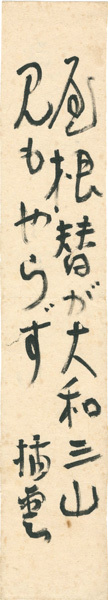 屋根替が大和三山
見もやらず
播雲